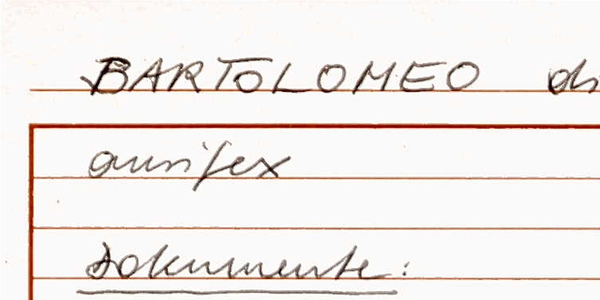 BARTOLOMEO di
aurifex
Dokumente: